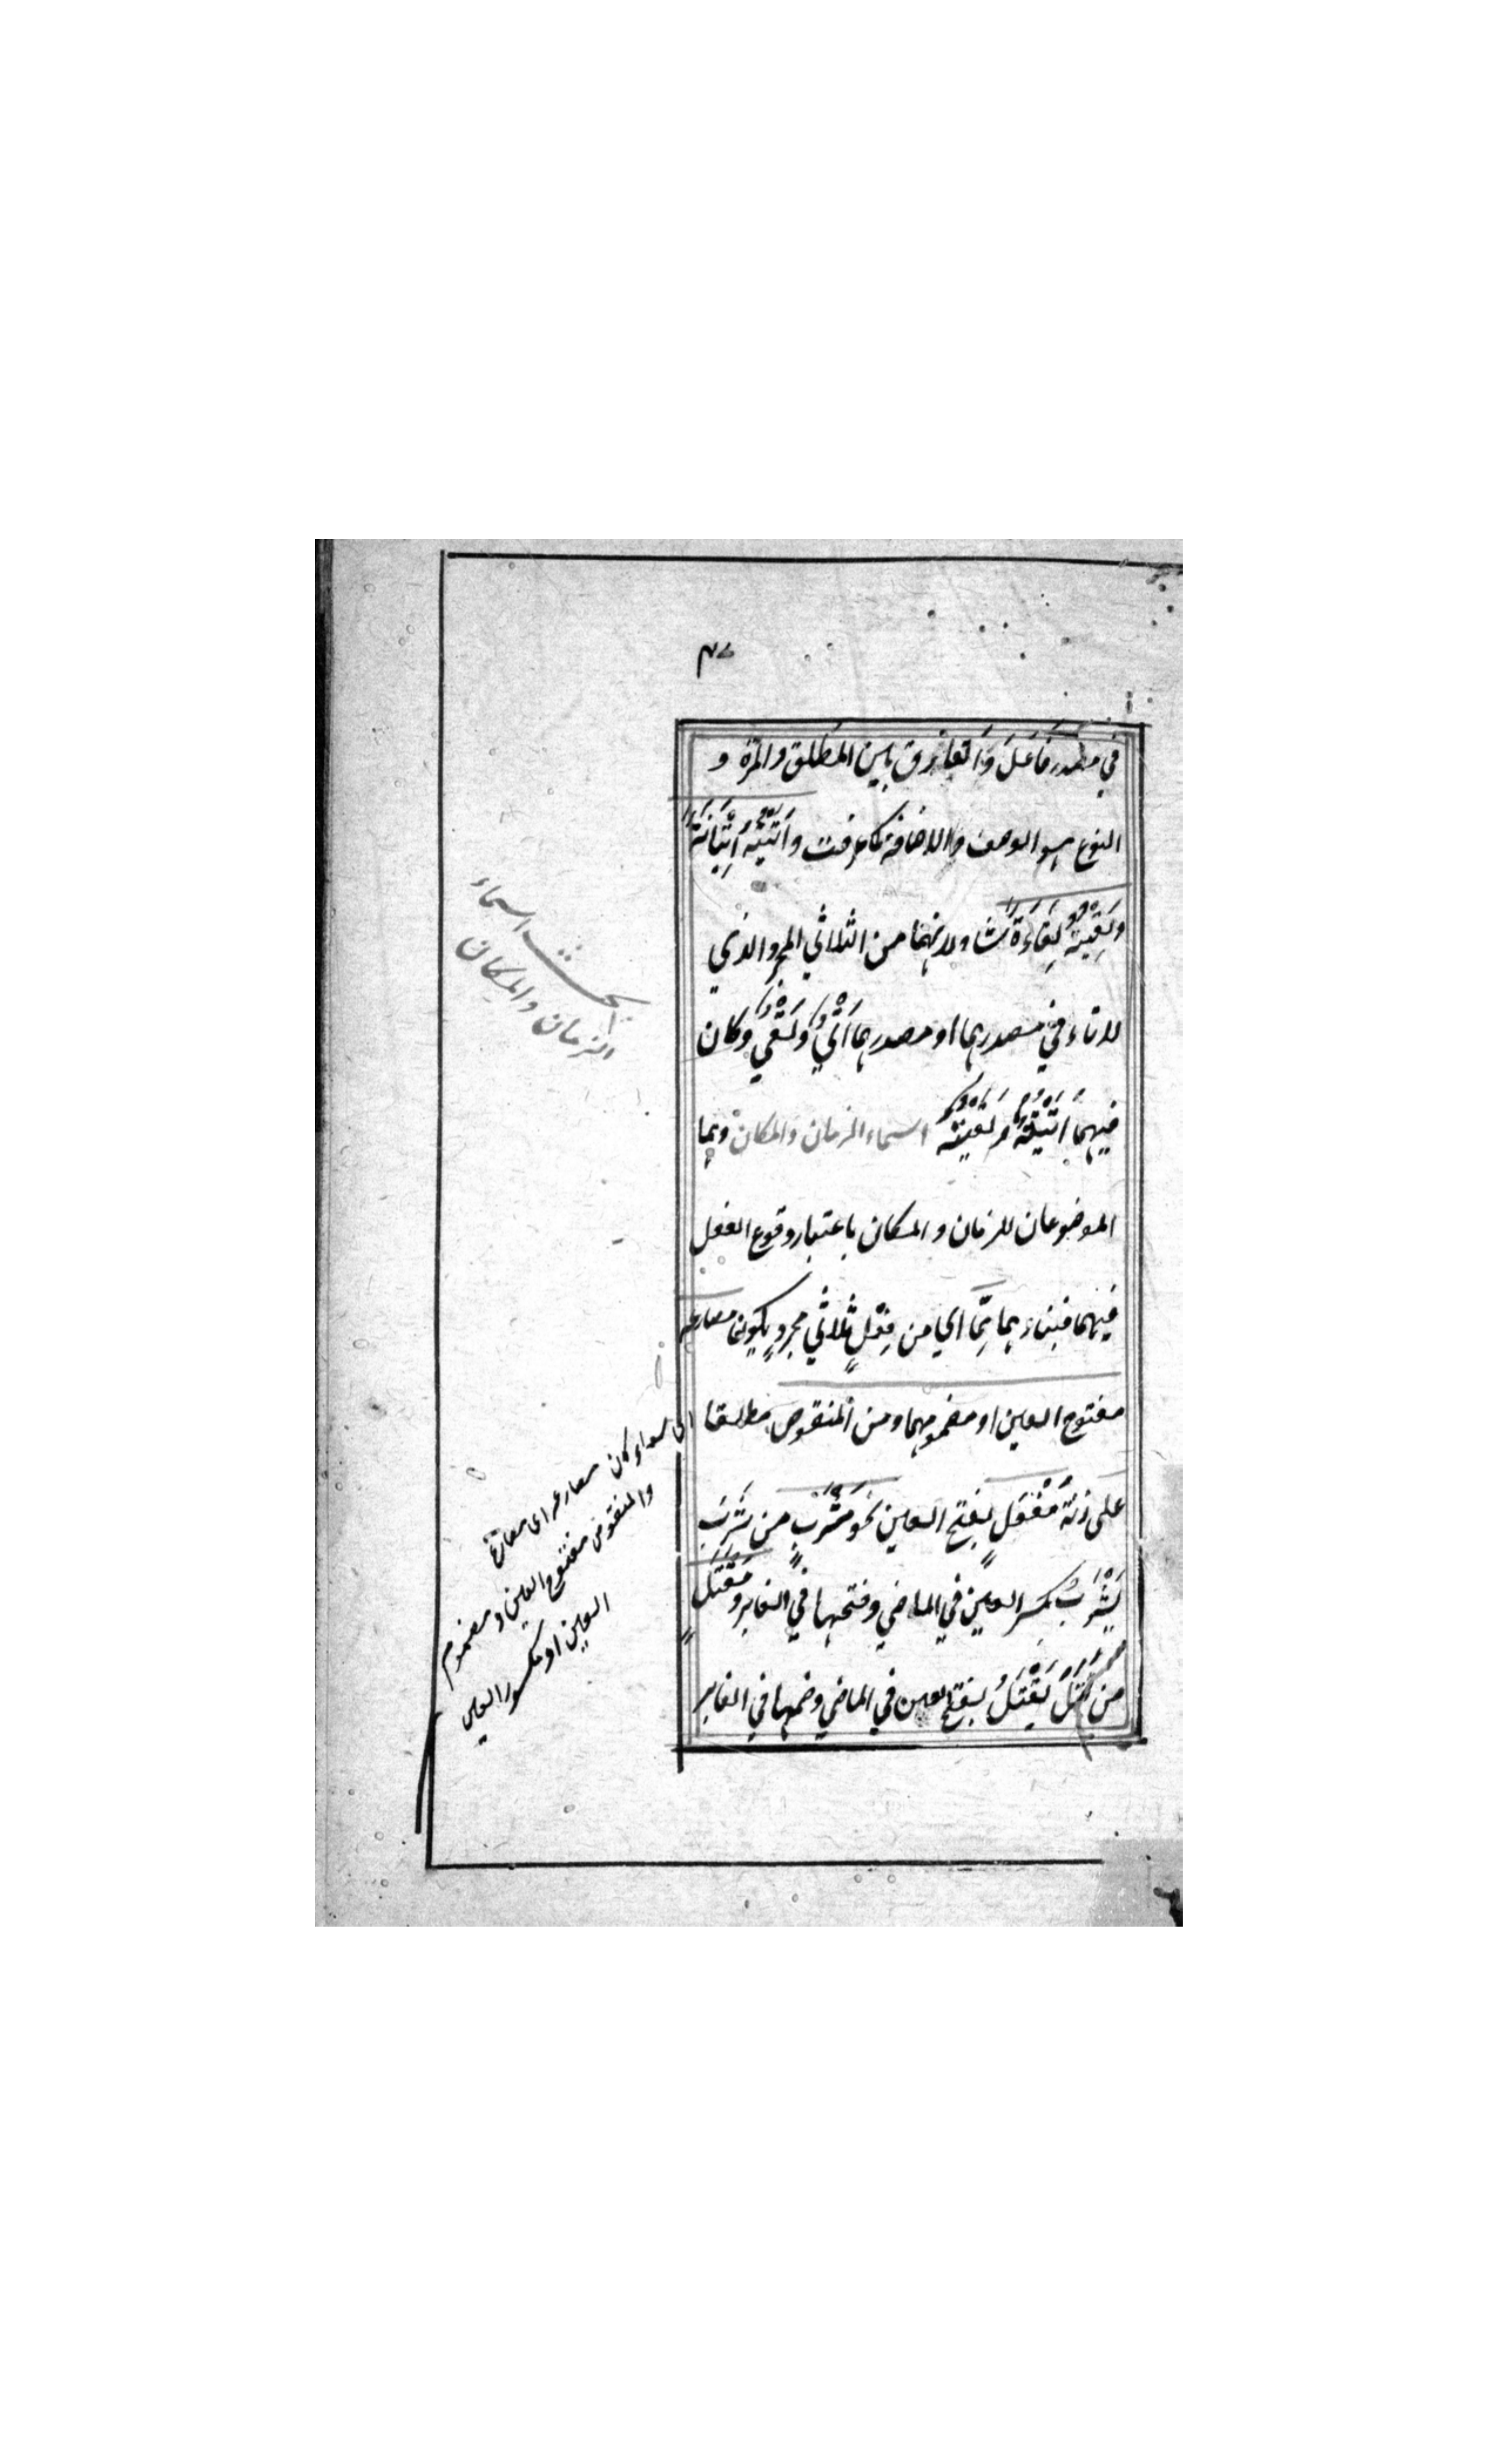 في مصدر فَاعَلَ وَالفارق بين المطلق والمرة و
النوع هو الوصف والاضافة كما عرفت وَاَتَيْتُه اِتْيَانَةً
وَلَقِيْتُهُ لِقَاءَةً شاذ لانهما من الثلاثي المجرد الذي
لا تاء في مصدرهما اذ مصدرهما اَتْيٌ وَلَقْيٌ وكان
فيهما اَتْيَةٌ ولَقْيَةٌ اسماء الزمان والمكان وهما
الموضوعان للزمان والمكان باعتبار وقوع الفعل
فيهما فبناءهما مِمَّا اي من فِعْلٍ ثلاثيٍ مجردٍ يكون مضارعه
مفتوح العين او مضمومها ومن المنقوص مطلقا
على زنة مَفْعَلٍ بفتح العين نحو مَشْرَبٍ من شَرِبَ
يَشْرَبُ بكسر العين في الماضي وفتحها في الغابر و مَقْتَلٍ
من قَتَلَ يَقْتُلُ بفتح العين في الماضي وضمها في الغابر
بحث اسماء
الزمان والمكان
اى سواء كان مضارعه اى مضارع
والمنقوص مفتوح العين و مضموم
العين او مكسور العين